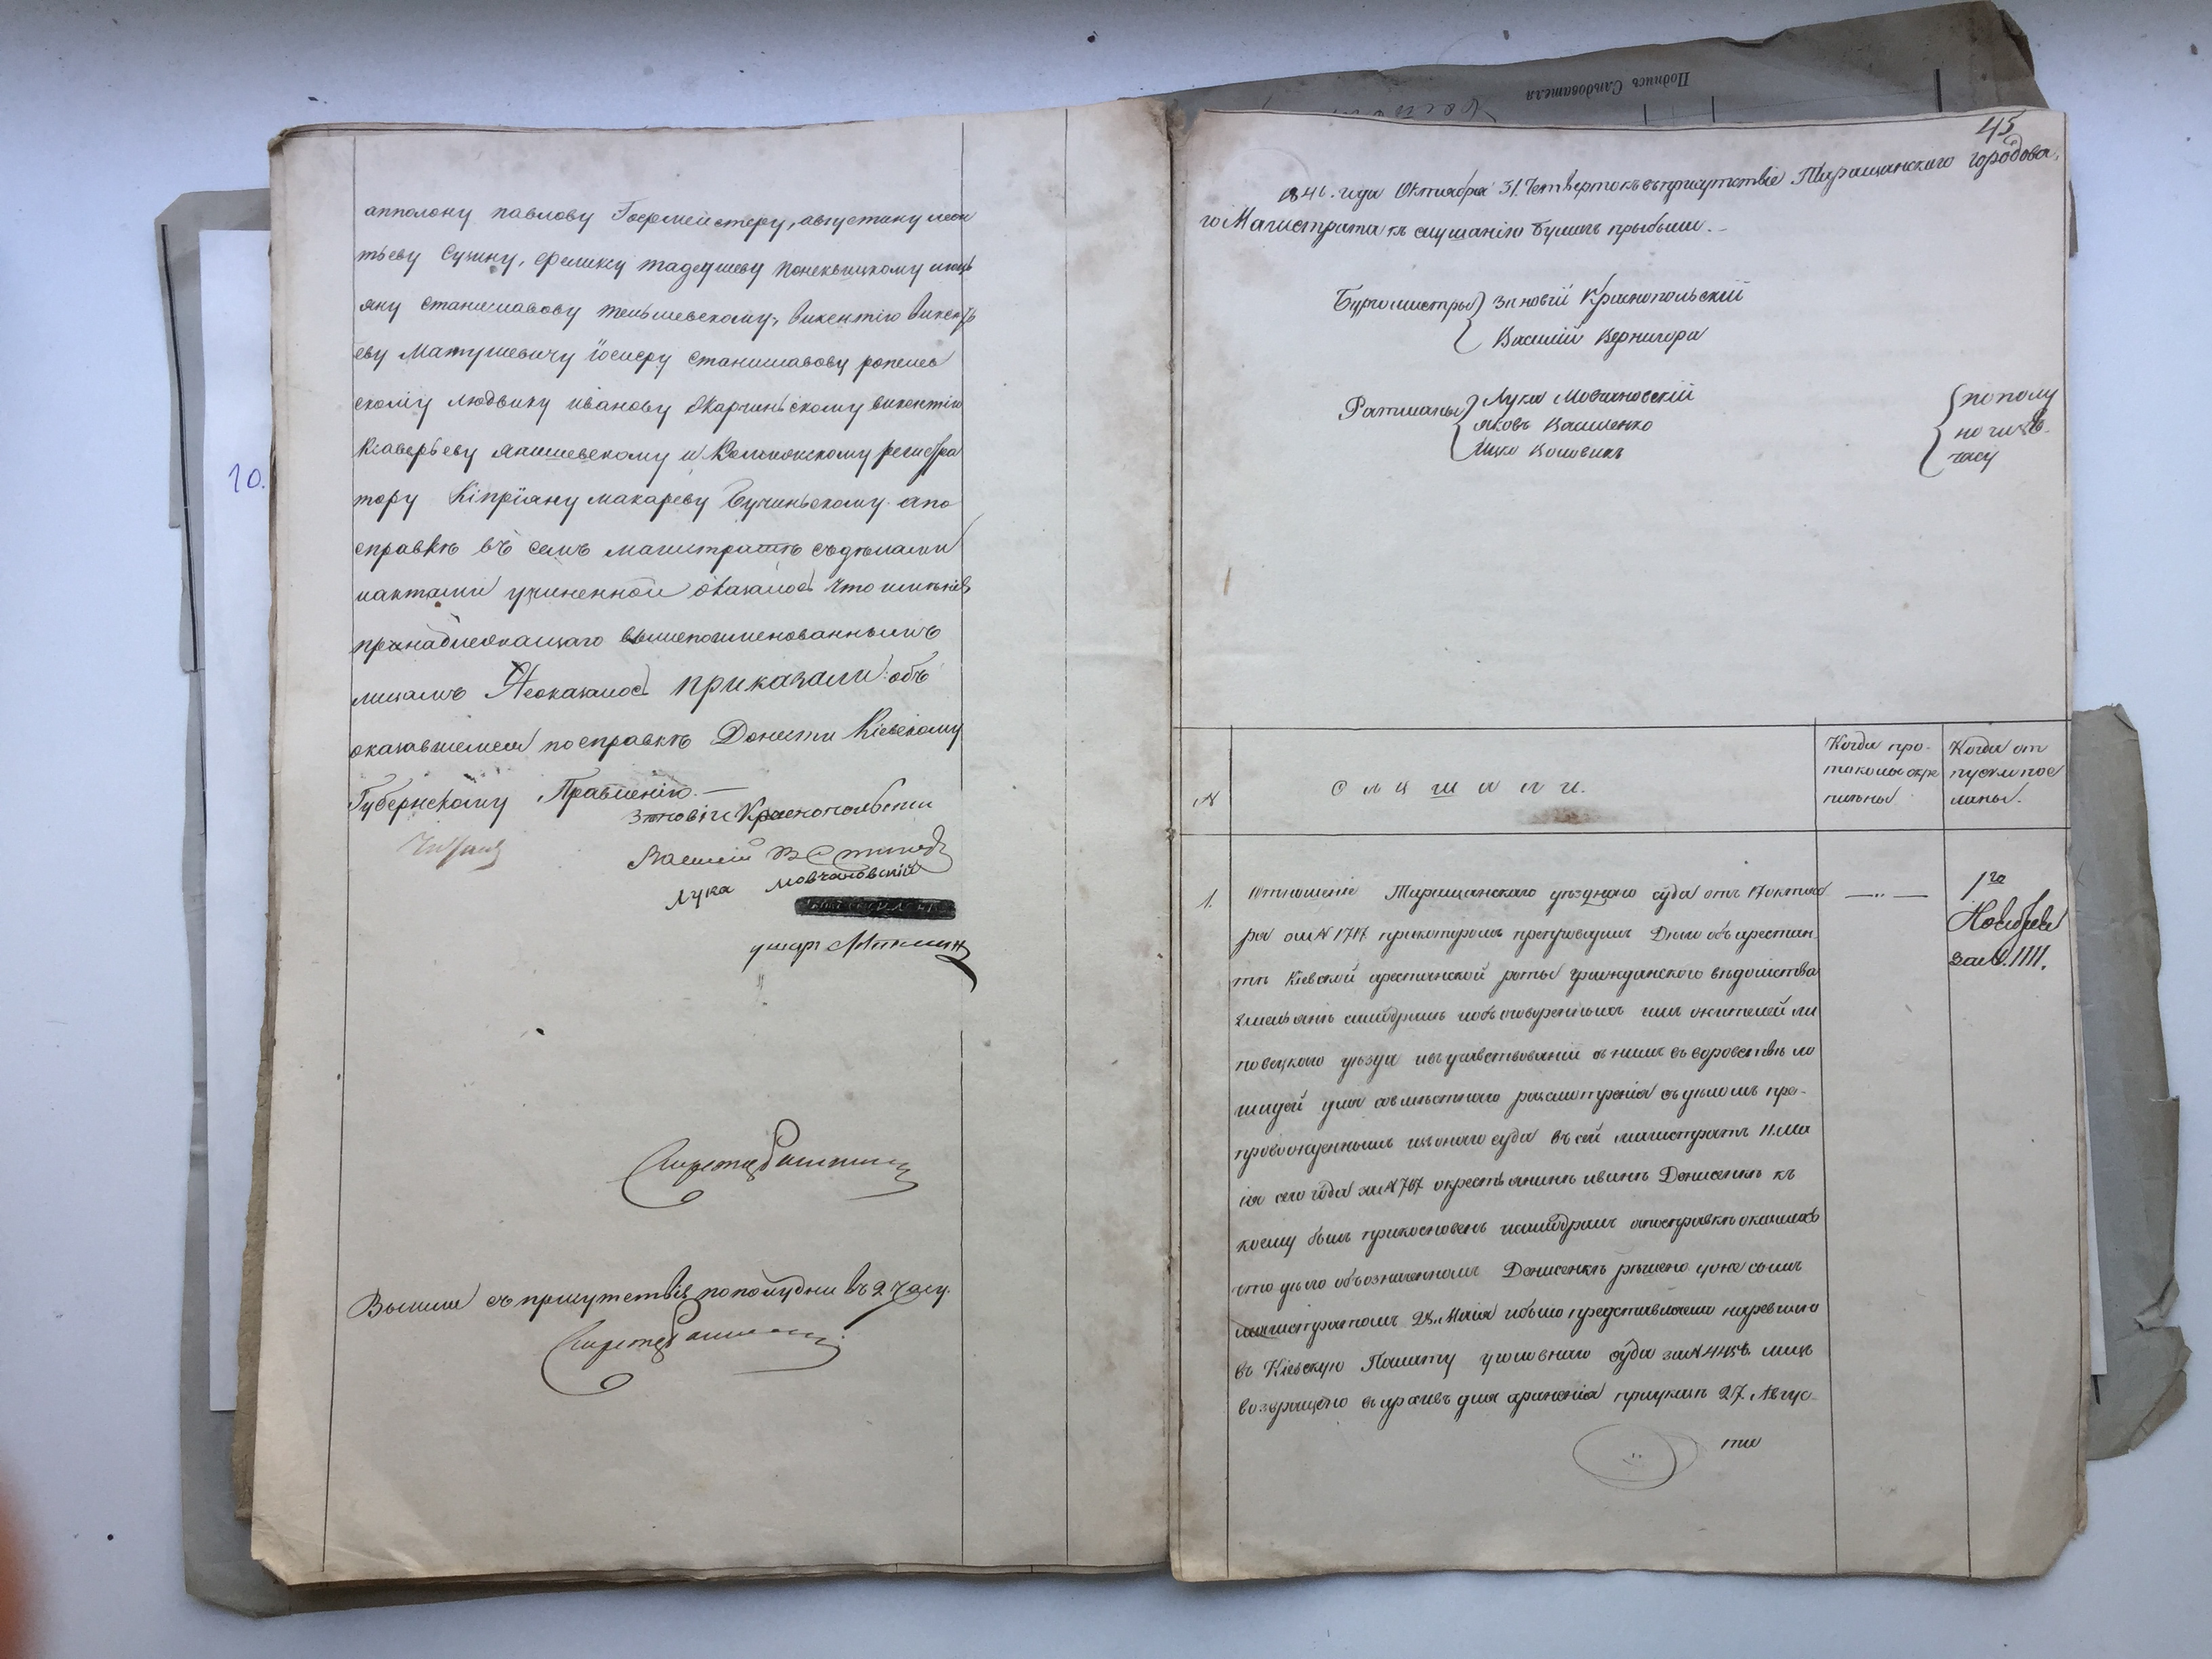 апполону павлову Гофмейстеру, августину леон
тьеву Сузину, феликсу тадеушеву понеквицкому
яну станиславову викентію викентъ
еву Матушевичу Іосиеру станиславову
скому людвику иванову викентію
Ксаверьеву и Коллежскому регистра
тору Кипріяну макареву Бучиньскому. а по
справкѣ въ семъ магистратѣ съ дѣлами
иактами учиненной оказалось что имѣнія
принадлежащаго вышепоименованнымъ
лицамъ Неоказалось приказали: объ
оказавшемся посправкѣ Донести Кіевскому
Губернскому Правленію. —
Зѣновій Краснопольскій
Василій
Лука Мовчановскій
Секретарь
Вышли съ присутствія пополудни въ 2 часу.
Секретарь
10.
Подпись Слѣдователя
45
1846. года Октября 31. Четвертокъ въприсутствіе Таращанского городова
го Магистрата къ слушанію бумагъ прибыли. -
Бургомистры Зиновій Краснопольскій
Василій Вернигора
Ратманы Лука Мовчановскій
Яковъ Василенко
Ицко Воловикъ
пополу
ночи въ
часу
№
Слушали.
Когда про-
токолы скрѣ
плены
Когда от
пуски пос
ланы.
1.
Отношеніе Таращанского уѣздного суда отъ 17 октяб
ря за № 1717 прикоторомъ препровдилъ Дѣло объ арестан-
тѣ Кіевской арестанской роты гражданского вѣдомства
иобъ оговоренныхъ имъ жителей ли
повецкого уѣзда въ участвованіи съ нимъ въ воровствѣ ло
шадей для совмѣстного разсмотренія съ дѣломъ пре-
провожденнымъ изъ оного суда въ сей магистратъ 11. Ма
ія сего года за № 707 окрестьянинѣ иванѣ Денисенкѣ къ
коему былъ прикосновенъ апосправкѣ оказалось
что дѣло обозначенномъ Денисенкѣ рѣшено уже симъ
магистратомъ 28. Маія ибыло представляемо наревизію
въ Кіевскую Палату уголовнаго суда за № 445
возвращено въ архивъ для храненія приуказѣ 27. Авгус-
та
— „ —
1го
Ноября
за № 1111.